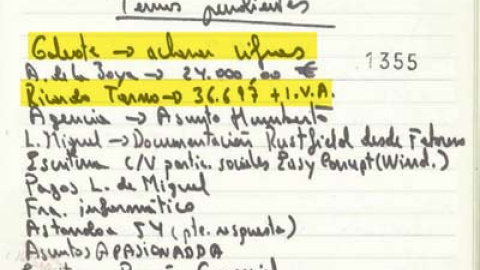 Temas pendientes
Galeote → aclarar cifras
.1355
A. de la Joya → 24.000,00 €
Ricardo Tormo → 36.697 + I.V.A.
Agencia → Asunto Humberto
L. Miguel → Documentación Rustfield desde Febrero
Escritura C/V partic. sociales Easy Concept (Wind.)
Pagos L. de Miguel
Fra. informático
Astandoa 54 (pte. respuesta)
Asuntos APASIONADDA